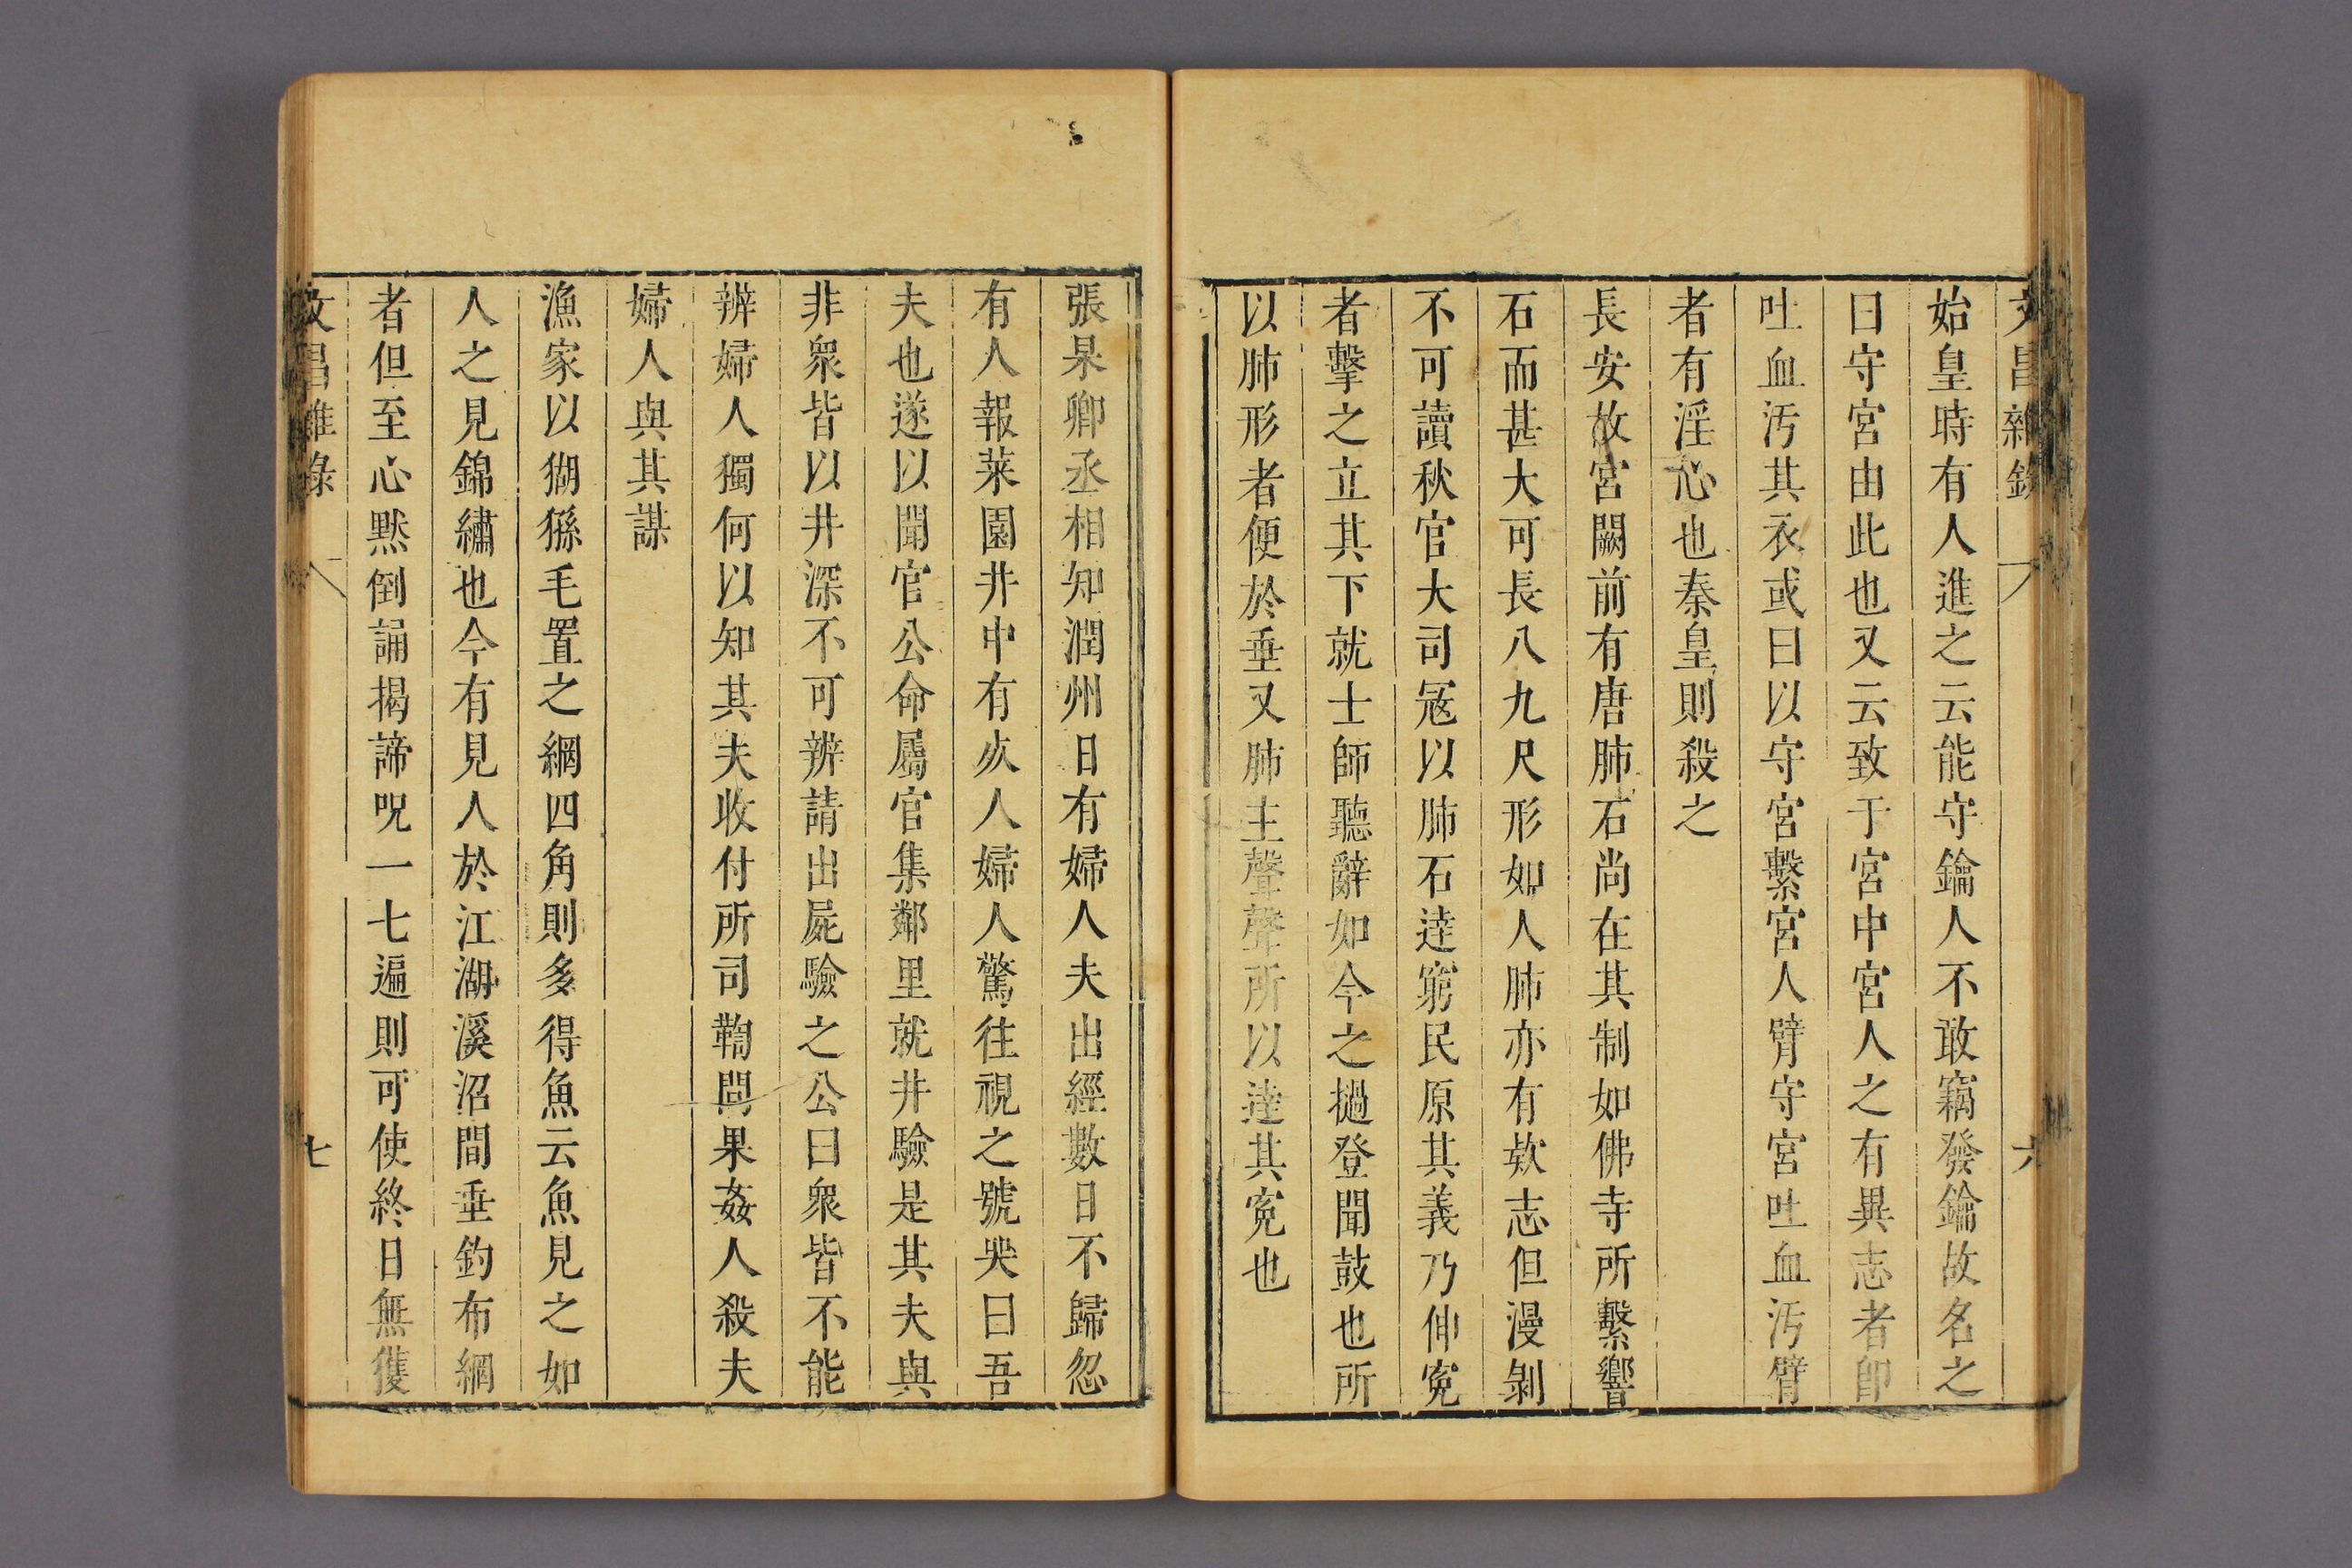 文昌雜錄 六
始皇時有人進之云能守鑰人不敢竊發鑰故名之
曰守宮由此也又云致于宮中宮人之有異志者卽
吐血汚其衣或曰以守宮繫宮人臂守宮吐血汚臂
者有淫心也秦皇則殺之
長安故宮闕前有唐肺石尚在其制如佛寺所繫響
石而甚大可長八九尺形如人肺亦有欵志但漫剝
不可讀秋官大司冦以肺石逹窮民原其義乃伸寃
者擊之立其下就士師聽辭如今之撾登聞鼓也所
以肺形者便於垂又肺主聲聲所以逹其寃也
張杲卿丞相知潤州日有婦人夫出經數日不歸忽
有人報菜園井中有灰人婦人驚往視之號哭曰吾
夫也遂以聞官公命屬官集鄰里就井驗是其夫與
非衆皆以井深不可辨請出屍驗之公曰衆皆不能
辨婦人獨何以知其夫收付所司鞫問果姦人殺夫
婦人與其謀
漁家以猢猻毛置之網四角則多得魚云魚見之如
人之見錦繡也今有見人於江湖溪沼間垂釣布網
者但至心默倒誦揭諦呪一七遍則可使終日無獲
文昌雜錄 七